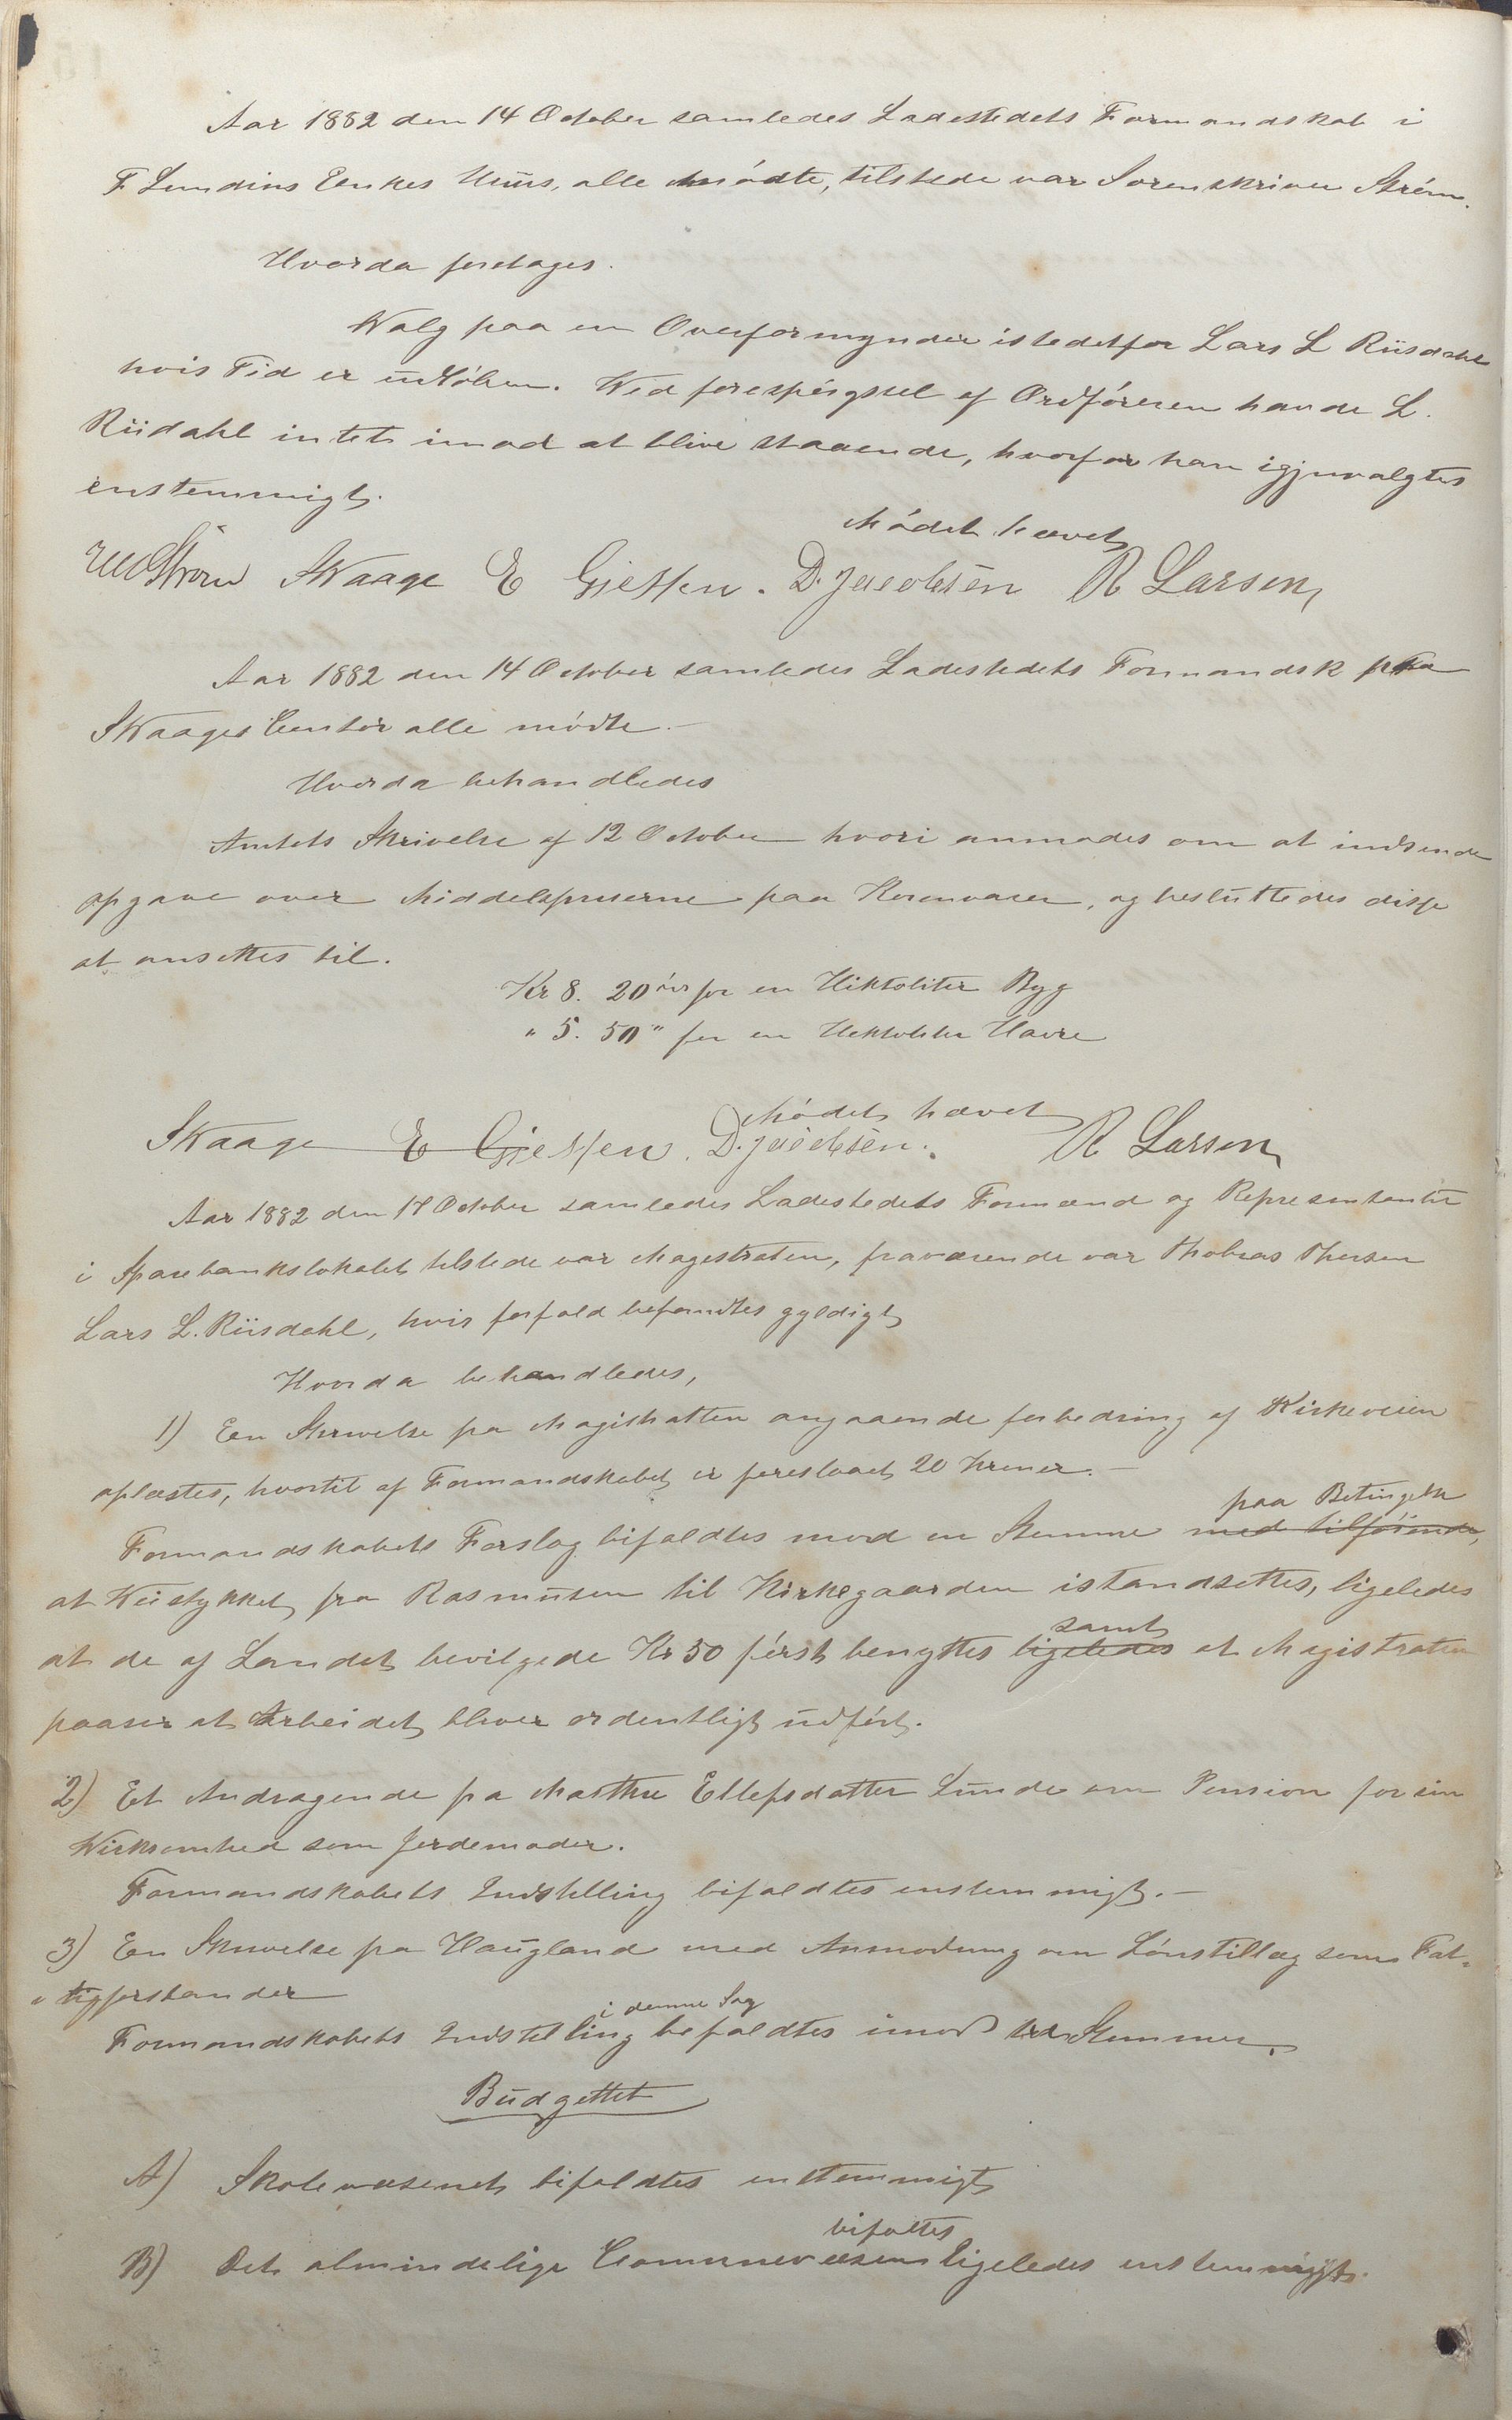 Aar 1882 den 14 October samledes Ladestedets Formandskab i
F Lundins Enkes Huus, alle mödte, tilstede var Sorenskriver Ström.
Hvorda foretages.
Walg paa en Overformynder istedetfor Lars L Riisdahl
hvis Tid er udlöben. Ved forespörgsel af Ordföreren havde L.
Riisdahl intet imod at blive staaende, hvorfor han igjenvalgtes
enstemmigt.
Mödet hævet
Ström SWaage E Gjessen. D. Jacobsen R Larsen,
Aar 1882 den 14 October samledes Ladestedets Formandsk paa
SWaages Contor alle mödte.
Hvorda behandledes
Amtets Skrivelse af 12 October hvori anmodes om at indsende
opgave over Middelspriserne paa Kornvarer, og besluttedes disse
at ansettes til.
Kr 8. 20 öre for en Hektoliter Byg
" 5. 50 " for en Hektoliter Havre
Mödet hævet
SWaage E Gjessen. D. Jacobsen. R Larsen
Aar 1882 den 17 October samledes Ladestedets Formænd og Representanter
i Sparebankslokalet tilstede var Magestraten, fraværende var Thobias Thersen
Lars L. Riisdahl, hvis forfald befandtes gyldigt
Hvorda behandledes,
1) Een Skrivelse fra Magistratten angaaende forbedring af Kirkeveien
oplæstes, hvortil af Formandskabet er foreslaaet 20 Kroner.
paa Betingelse
Formandskabets Forslag bifaldtes mod en Stemme med tilföiende,
at Veistykket fra Rasmusen til Kirkegaarden istandsettes, ligeledes
samt
at de af Landet bevilgede Kr 50 först benyttes ligeledes at Magistraten
paaser at Arbeidet bliver ordentligt udfört.
2) Et Andragende fra Marthe Ellefsdatter Lunde om Pension for sin
Virksomhed som Jordemoder.
Formandskabets Indstilling bifaldtes enstemmigt.
3) Een Skrivelse fra Haugland med Anmodning om Lönstillæg som Fat-
tigforstander
i denne Sag
Formandskabets Indstilling bifaldtes imod Stemmer.
Budgettet
A) Skolevæsenet bifaldtes enstemmigt
bifaltes
B) Det almindelige Communevæsen ligeledes enstemmigt.